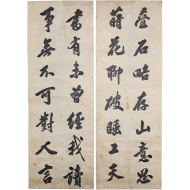 疊石略存山意思
蒔花聊破睡工夫
書有未曾經我讀
事無不可對人言